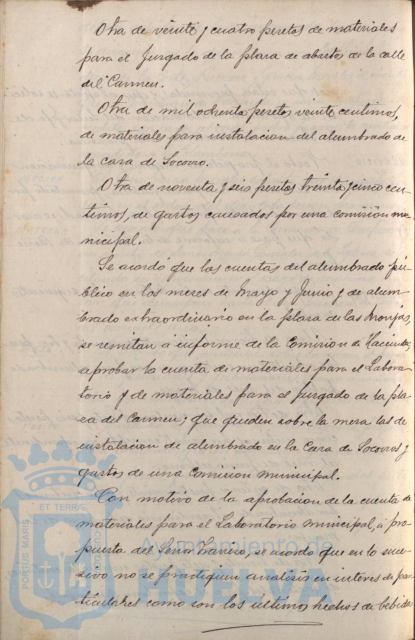 Otra de veinte y cuatro pesetas de materiales
para el Juzgado de la plaza de abastos de la calle
del Carmen.
Otra de mil ochenta pesetas veinte centimos,
de materiales para instalacion del alumbrado de
la casa de Socorro.
Otra de noventa y seis pesetas treinta y cinco cen-
timos, de gastos causados por una comisión mu-
nicipal.
Se acordó que las cuentas del alumbrado pú-
blico en los meses de Mayo y Junio y de alum-
brado extraordinario en la plaza de las Monjas,
se remitan á informe de la Comision de Hacienda,
aprobar la cuenta de materiales para el Labora-
torio y de materiales para el juzgado de la pla-
za del Carmen; que queden sobre la mesa las de
instalacion de alumbrado en la Casa de Socorro y
gastos de una Comision municipal.
Con motivo de la aprobacion de la cuenta de
materiales para el Laboratorio municipal, á pro-
puesta del Señor, se acordó que en lo suce-
sivo no se practiquen analisis en interes de par-
ticulares como son los ultimos hechos de bebidas
PORTUS MARIS ET TERRÆ CUSTODIO
Ayuntamiento de
HUELVA